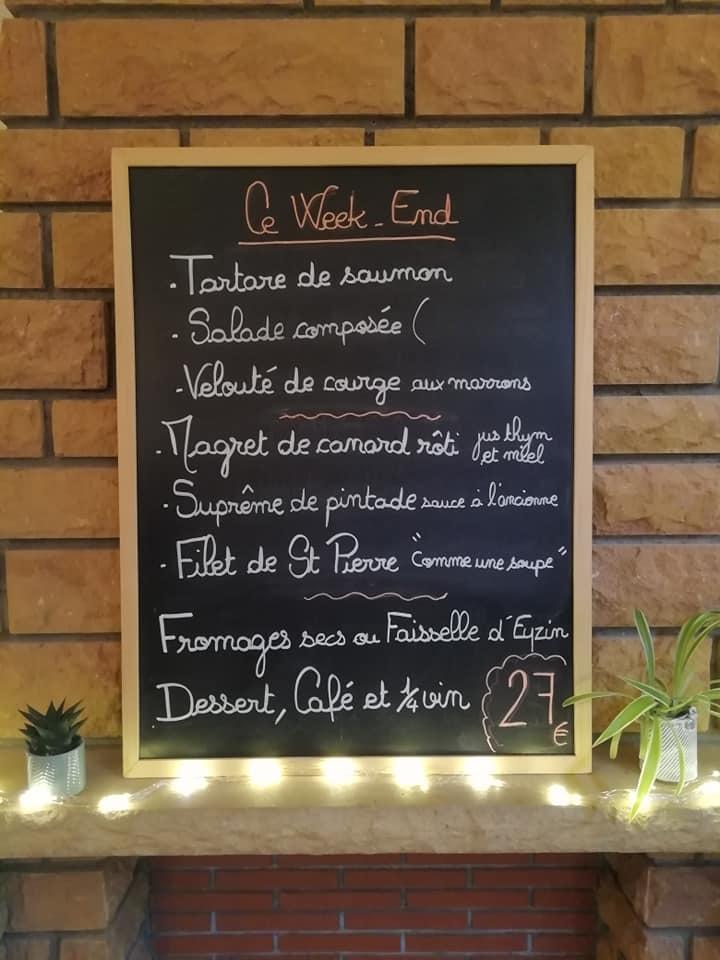 Ce Week-End
. Tartare de saumon
. Salade composée (
. Velouté de courge aux marrons
. Magret de canard rôti jus thym et miel
. Suprême de pintade sauce à l'ancienne
. Filet de St Pierre "comme une soupe"
Fromages secs ou Faisselle d'Eyzin
Dessert, Café et 1/4 vin 27 €